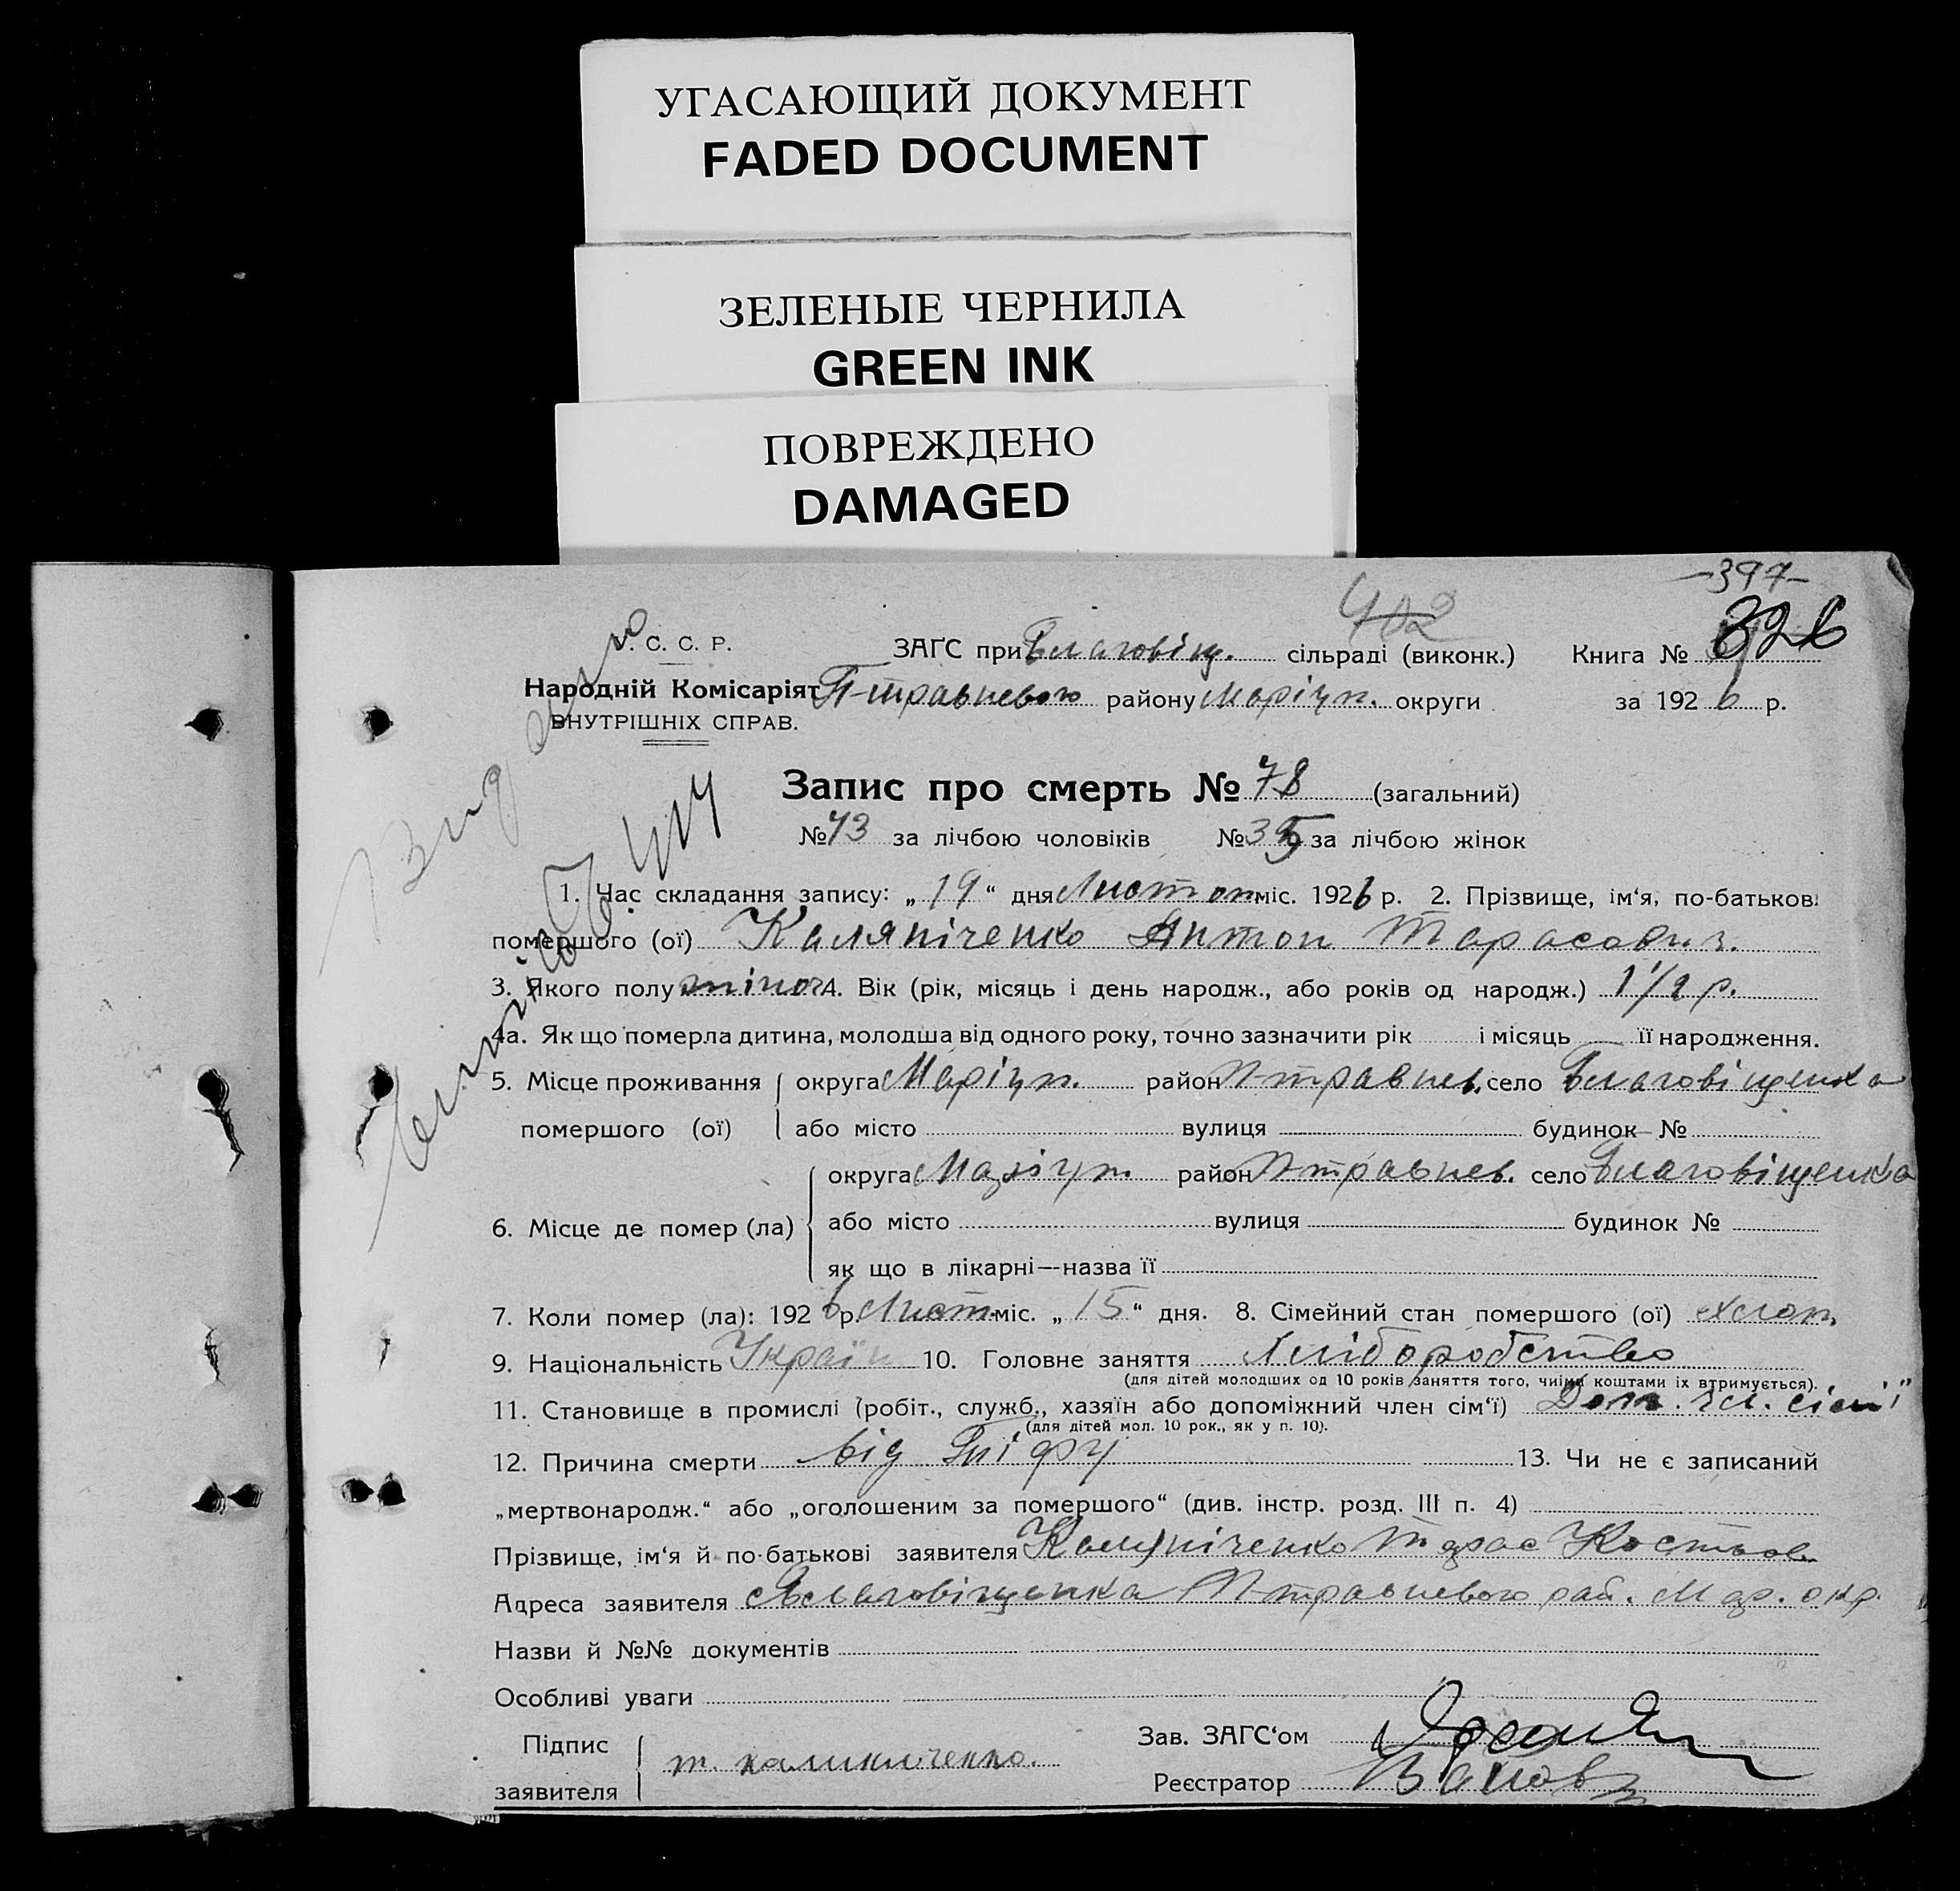 УГАСАЮЩИЙ ДОКУМЕНТ
FADED DOCUMENT
ЗЕЛЕНЫЕ ЧЕРНИЛА
GREEN INK
ПОВРЕЖДЕНО
DAMAGED
-397-
402
У. С. С. Р. ЗАГС при Благовіщ. сільраді (виконк.) Книга № 326
Народній Комісаріят П-травневого району Маріуп. округи за 1926 р.
ВНУТРІШНІХ СПРАВ.
Запис про смерть № 78 (загальний)
№ 43 за лічбою чоловіків № 35 за лічбою жінок
1. Час складання запису: „19“ дня Листоп. міс. 1926 р. 2. Прізвище, ім‘я, по-батькові
помершого (ої) Каляніченко Антон Тарасович.
3. Якого полу 4. Вік (рік, місяць і день народж., або років од народж.) 1 1/2 р.
4а. Як що померла дитина, молодша від одного року, точно зазначити рік і місяць її народження.
5. Місце проживання округа Маріуп. район П-травнев. село Благовіщенка
помершого (ої) або місто вулиця будинок №
округа Маріуп. район П-травнев. село Благовіщенка
6. Місце де помер (ла) або місто вулиця будинок №
як що в лікарні—назва її
7. Коли помер (ла): 1926 р. Лист. міс. „15“ дня. 8. Сімейний стан помершого (ої) хлоп.
9. Національність Україн 10. Головне заняття Хліборобство
(для дітей молодших од 10 років заняття того, чиїми коштами їх втримується).
11. Становище в промислі (робіт., служб., хазяїн або допоміжний член сім‘ї) Доп. чл. сім'ї
(для дітей мол. 10 рок., як у п. 10).
12. Причина смерти від Тіфу 13. Чи не є записаний
„мертвонародж.“ або „оголошеним за помершого“ (див. інстр. розд. III п. 4)
Прізвище, ім‘я й по-батькові заявителя Каляніченко Тарас Костьов.
Адреса заявителя с. Благовіщенка П-травневого рай. Мар. окр.
Назви й №№ документів
Особливі уваги
Підпис Зав. ЗАГС‘ом
заявителя т. калиниченко. Реєстратор